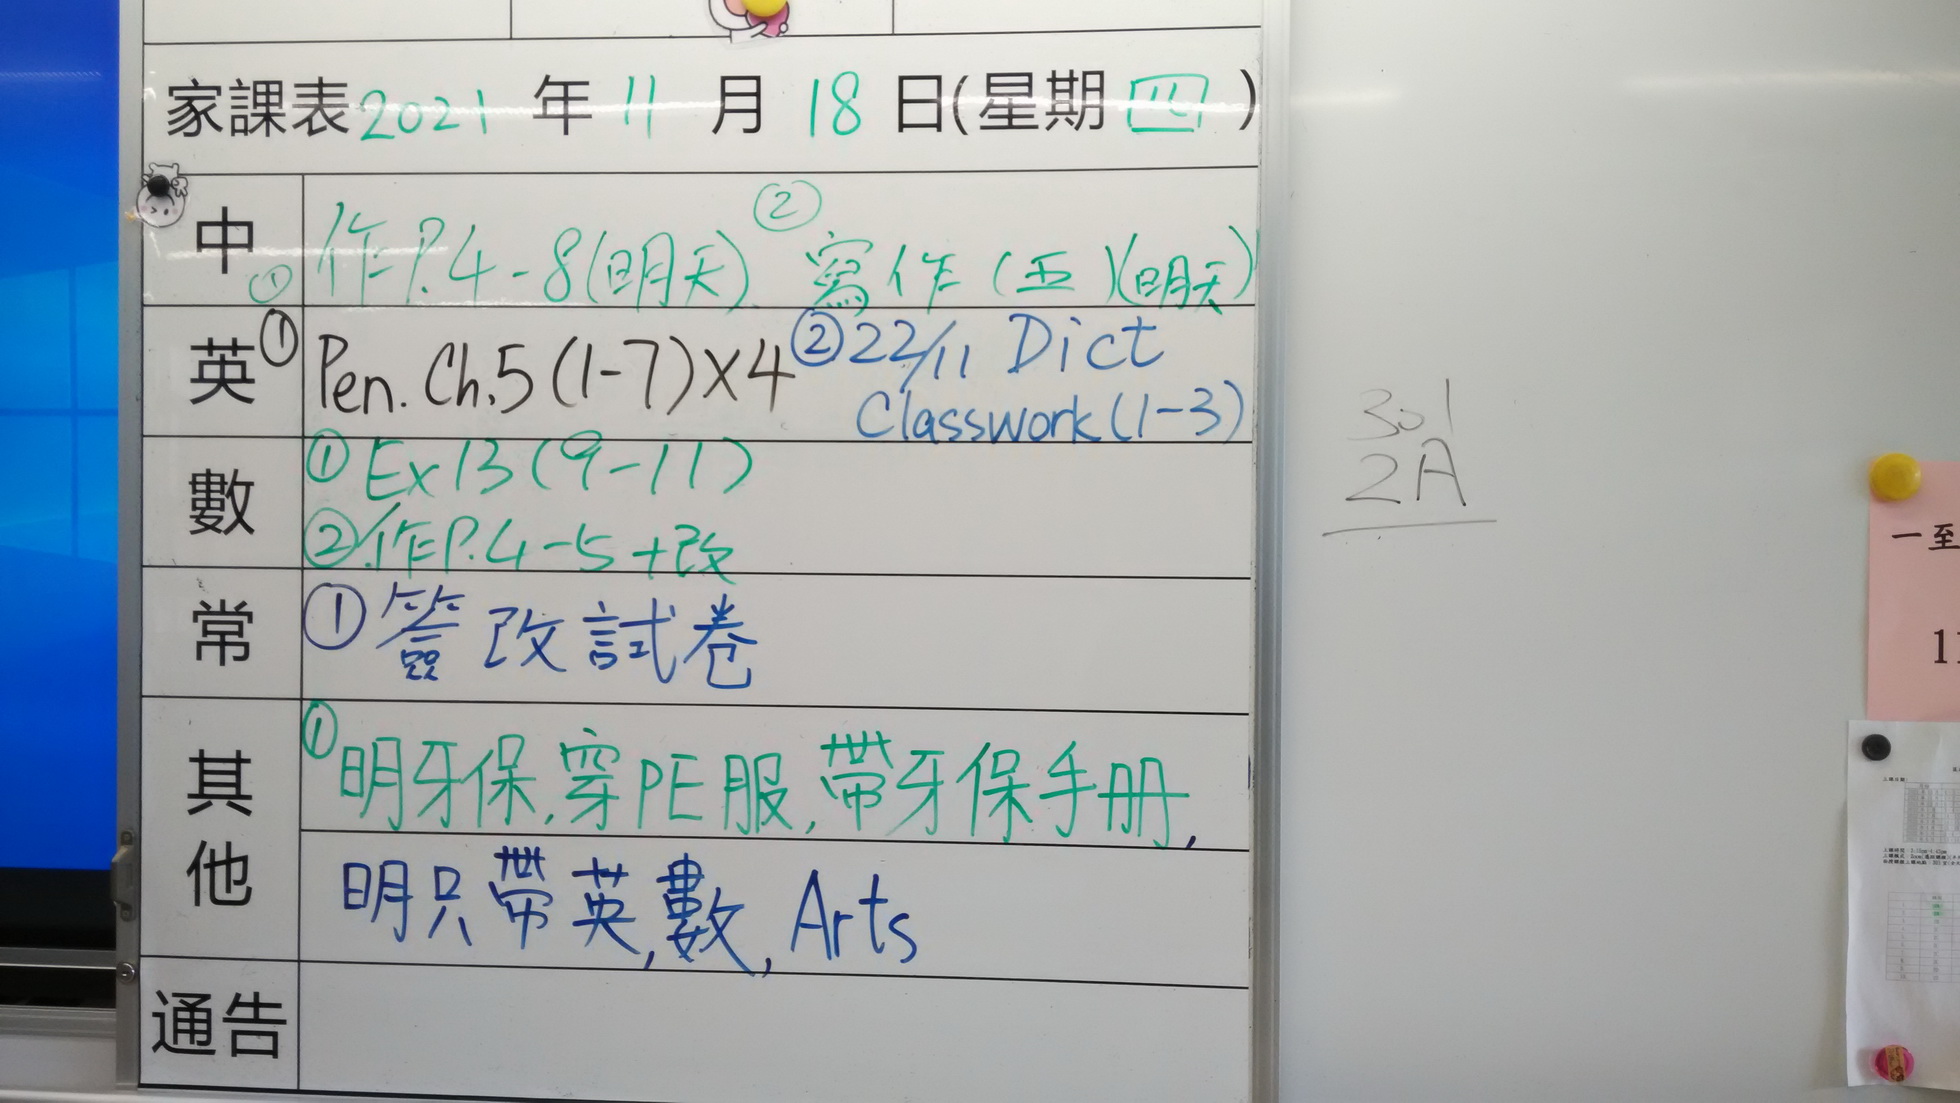 家課表 2021 年 11 月 18 日(星期四)
中 ① 作P.4-8(明天) ② 寫作(五)(明天)
英 ① Pen. Ch.5 (1-7)×4 ② 22/11 Dict
Classwork (1-3)
數 ① Ex13 (9-11)
② 作P.4-5+改
常 ① 簽改試卷
其他 ① 明牙保,穿PE服,帶牙保手册,
明只帶英,數,Arts
通告
301
2A
一至
11